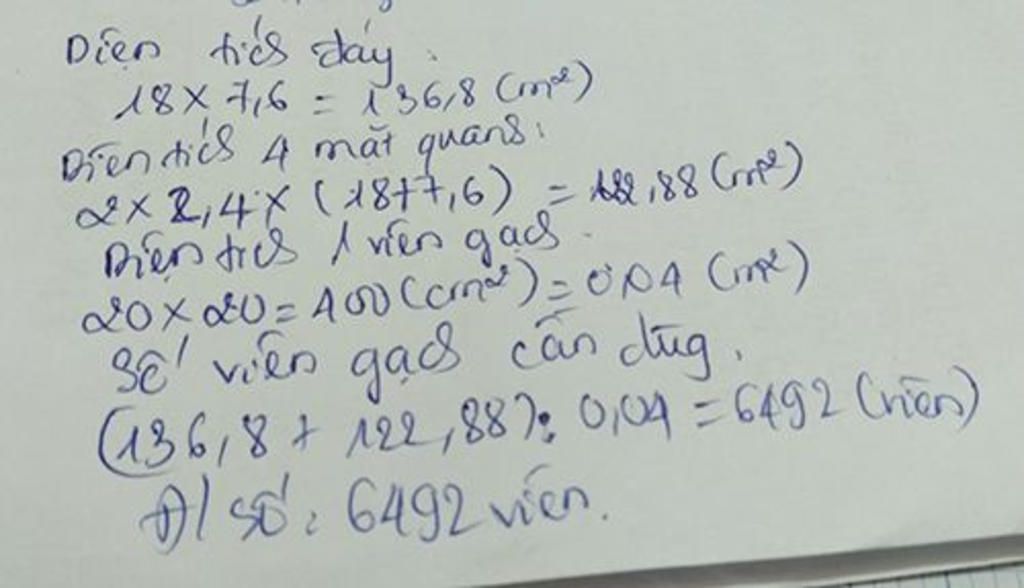 Diện tích đáy:
18 x 7,6 = 136,8 (m²)
Diện tích 4 mặt quanh:
2 x 2,4 x (18+7,6) = 122,88 (m²)
Diện tích 1 viên gạch.
20 x 20 = 400 (cm²) = 0,04 (m²)
Số viên gạch cần dùg.
(136,8 + 122,88): 0,04 = 6492 (viên)
Đ/số: 6492 viên.